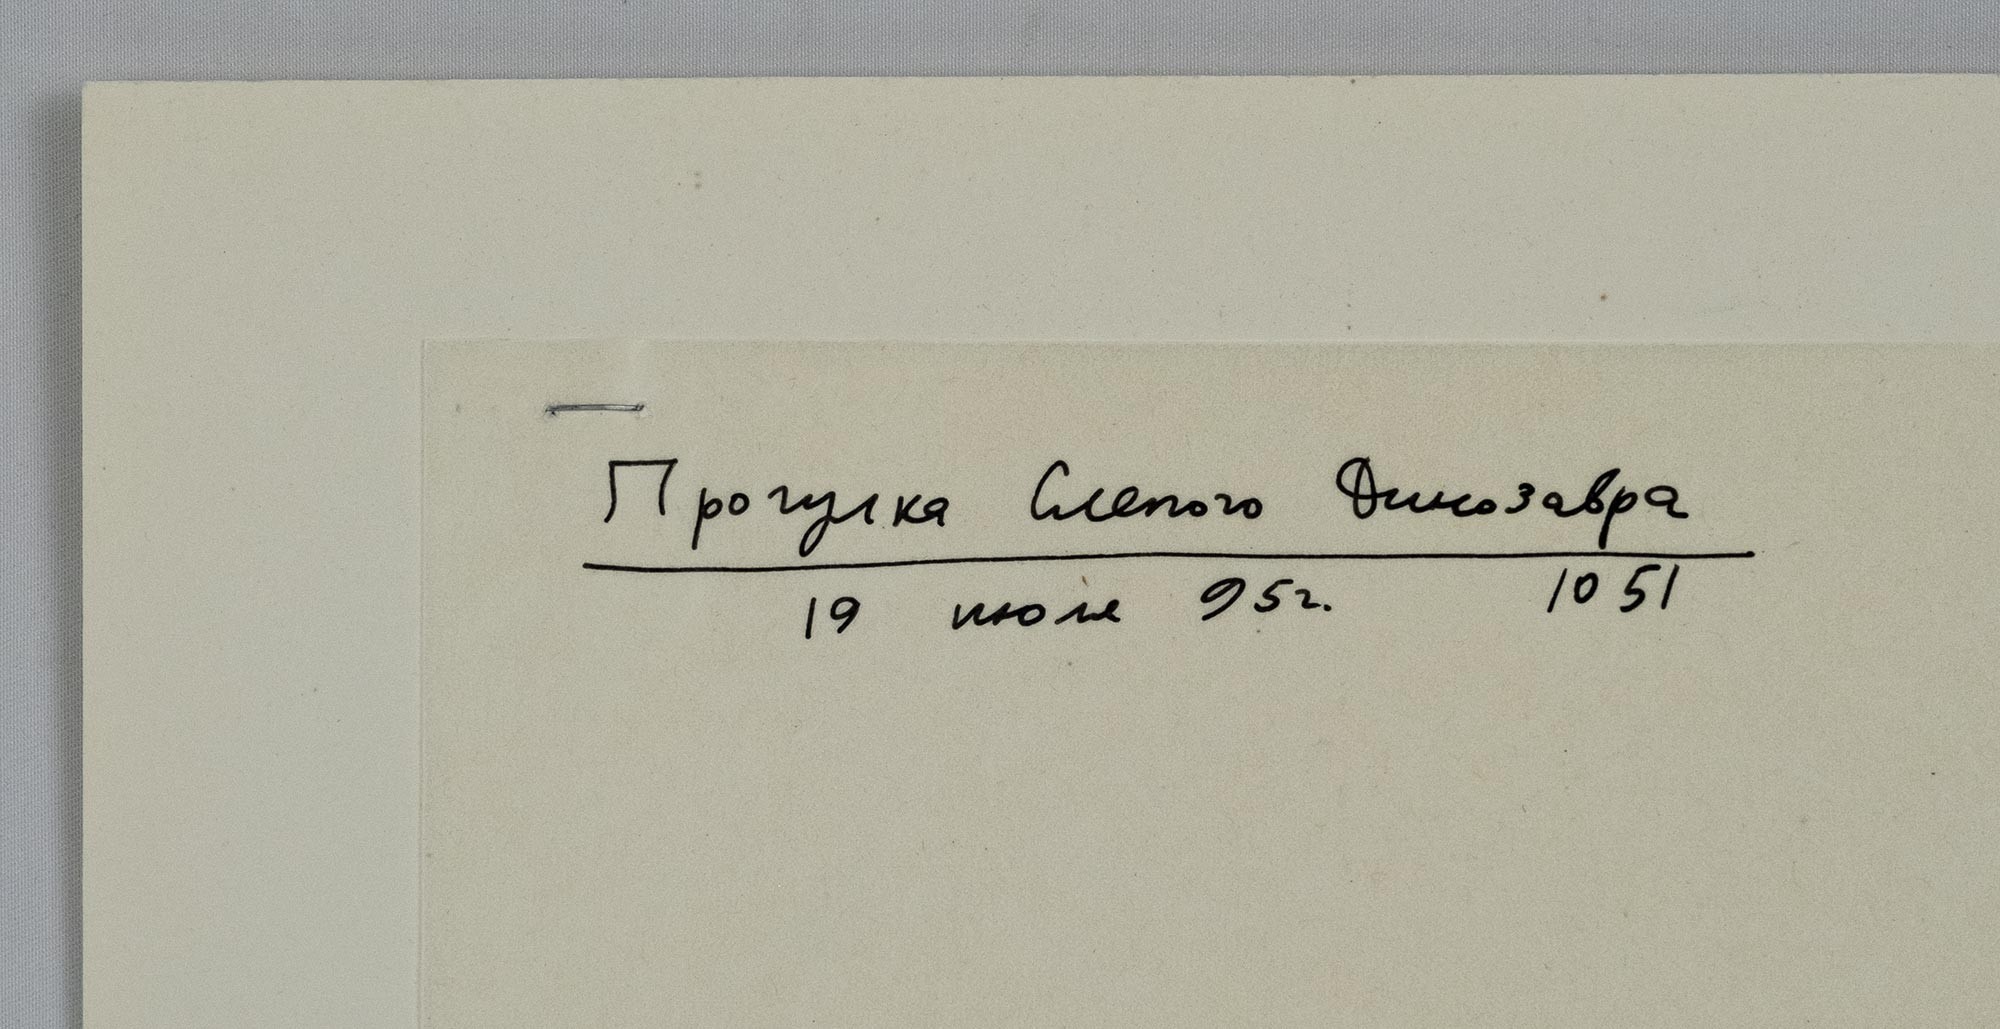 Прогулка Слепого Динозавра
19 июля 95г. 1051